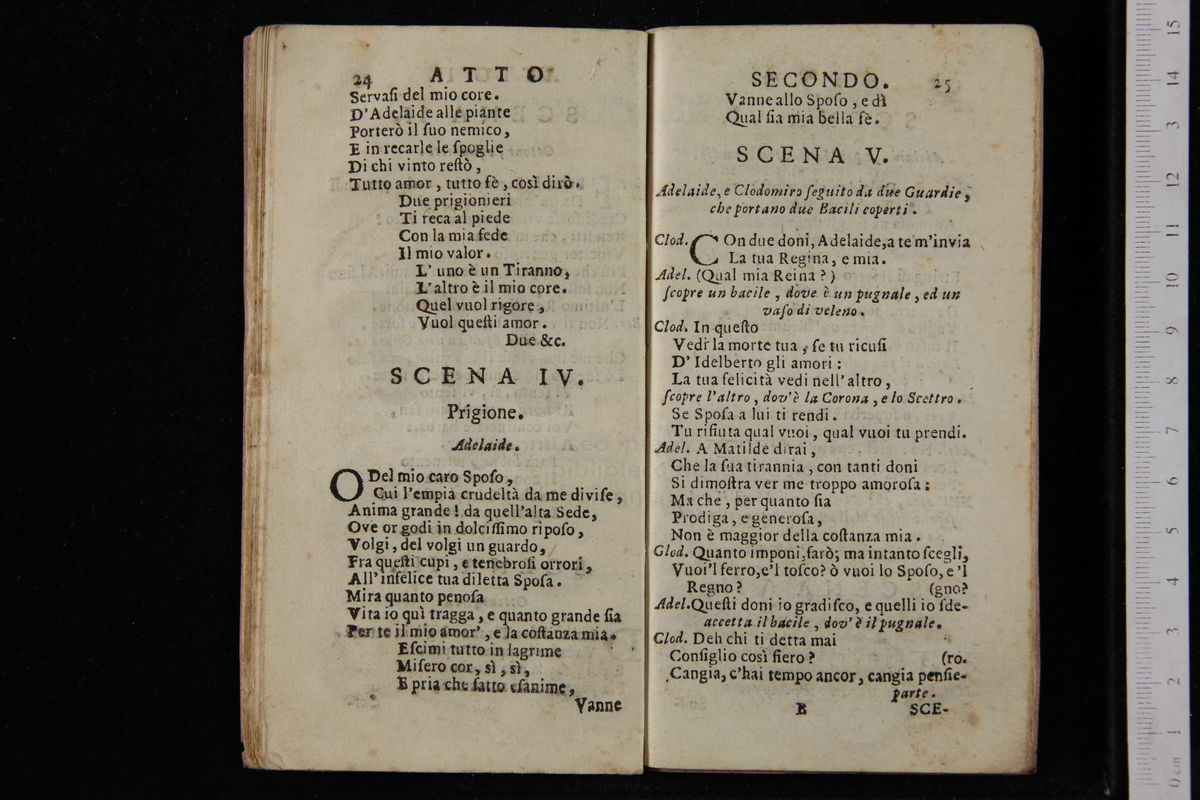 24 ATTO
Servaſi del mio core.
D'Adelaide alle piante
Porterò il ſuo nemico,
E in recarle le ſpoglie
Di chi vinto reſtò,
Tutto amor, tutto fè, così dirò.
Due prigionieri
Ti reca al piede
Con la mia fede
Il mio valor.
L'uno è un Tiranno,
L'altro è il mio core.
Quel vuol rigore,
Vuol queſti amor.
Due &c.
SCENA IV.
Prigione.
Adelaide.
O Del mio caro Spoſo,
Cui l'empia crudeltà da me diviſe,
Anima grande! da quell'alta Sede,
Ove or godi in dolciſſimo ripoſo,
Volgi, del volgi un guardo,
Fra queſti cupi, e tenebroſi orrori,
All'infelice tua diletta Spoſa.
Mira quanto penoſa
Vita io quì tragga, e quanto grande ſia
Per te il mio amor', e la coſtanza mia.
Eſcimi tutto in lagrime
Miſero cor, sì, sì,
E pria che fatto eſanime,
Vanne
SECONDO. 25
Vanne allo Spoſo, e dì
Qual ſia mia bella fè.
SCENA V.
Adelaide, e Clodomiro ſeguito da due Guardie,
che portano due Bacili coperti.
Clod. COn due doni, Adelaide, a te m'invia
La tua Regina, e mia.
Adel. (Qual mia Reina?)
ſcopre un bacile, dove è un pugnale, ed un
vaſo di veleno.
Clod. In queſto
Vedi la morte tua, ſe tu ricuſi
D'Idelberto gli amori:
La tua felicità vedi nell'altro,
ſcopre l'altro, dov'è la Corona, e lo Scettro.
Se Spoſa a lui ti rendi.
Tu rifiuta qual vuoi, qual vuoi tu prendi.
Adel. A Matilde dirai,
Che la ſua tirannia, con tanti doni
Si dimoſtra ver me troppo amoroſa:
Ma che, per quanto ſia
Prodiga, e generoſa,
Non è maggior della coſtanza mia.
Clod. Quanto imponi, farò; ma intanto ſcegli,
Vuoi'l ferro, e'l toſco? ò vuoi lo Spoſo, e'l
Regno? (gno?
Adel. Queſti doni io gradiſco, e quelli io ſde-
accetta il bacile, dov'è il pugnale.
Clod. Deh chi ti detta mai
Conſiglio così fiero? (ro.
Cangia, c'hai tempo ancor, cangia penſie-
parte.
B SCE-